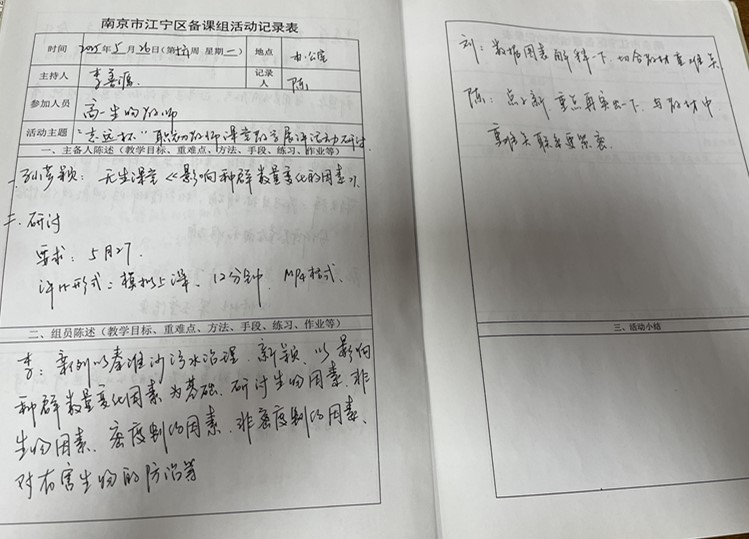 南京市江宁区备课组活动记录表
时间 2025年5月26日(第 周 星期一) 地点 办公室
主持人 李 记录人 陈
参加人员 高一生物教师
活动主题 "志远杯"职初教师课堂教学展评活动研讨.
一、主备人陈述(教学目标、重难点、方法、手段、练习、作业等)
一. 孙梦颖:无生课堂《影响种群数量变化的因素》.
二. 研讨
要求:5月27.
评比形式:模拟上课、12分钟、MP4格式、
二、组员陈述(教学目标、重难点、方法、手段、练习、作业等)
李:案例以秦淮河污水治理.新颖.以影响
种群数量变化因素为基础.研讨生物因素、非
生物因素、密度制约因素、非密度制约因素、
对有害生物的防治等
刘:数据因素解释一下.切合教材重难点
陈:点 新 重点再突出一下、与教材中
重难点联系要紧密.
三、活动小结